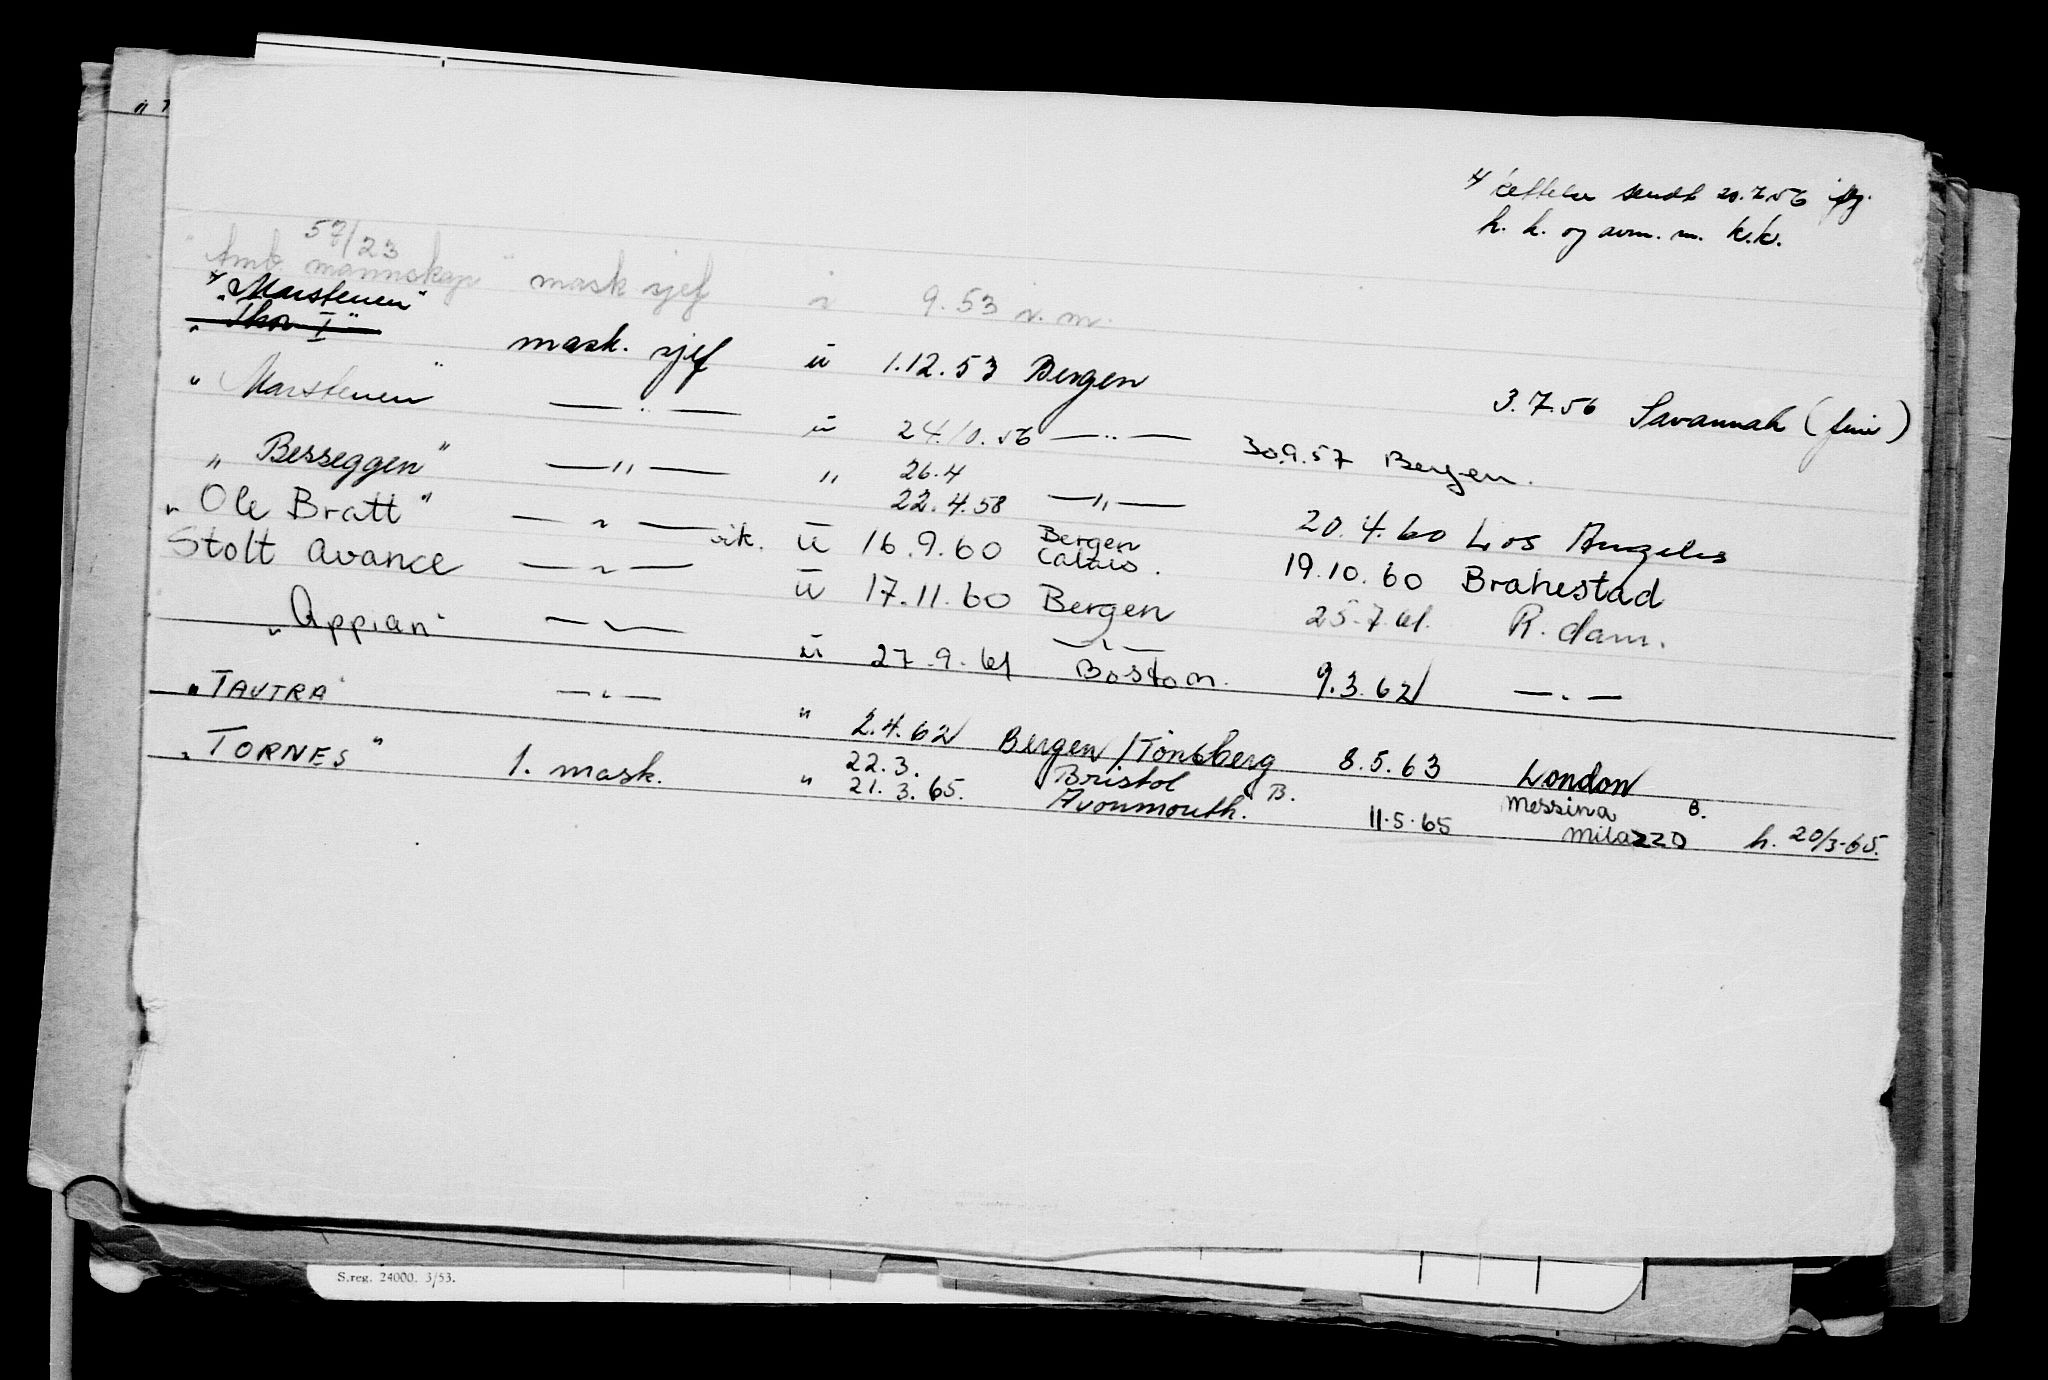 x/ rettelse sendt 20.7.56
h. h. og avm. m. k.k.
57/23
"Amb mannskap" mask sjef 9.53 n.m.
x "Marstenen"
"Thor I" mask. sjef u 1.12.53 Bergen 3.7.56 Savannah (ferie)
"Marstenen" — " — u 24.10.56 — " — 30.9.57 Bergen.
"Besseggen" — " — " 26.4
22.4.58 — " — 20.4.60 Los Angeles
"Ole Bratt" — " — vik. u 16.9.60 Bergen
Calais. 19.10.60 Brahestad
Stolt Avance — " — u 17.11.60 Bergen 25.7.61. R.dam.
"Appian" — " — u 27.9.61 — " —
Boston. 9.3.62 — " —
"TAUTRA" — " — " 2.4.62 Bergen/Tönsberg 8.5.63 London
"TORNES" 1. mask. " 22.3. Bristol B.
21.3.65. Avonmouth. 11.5.65 Messina B.
Milazzo h. 20/3-65.
S.reg. 24000. 3/53.